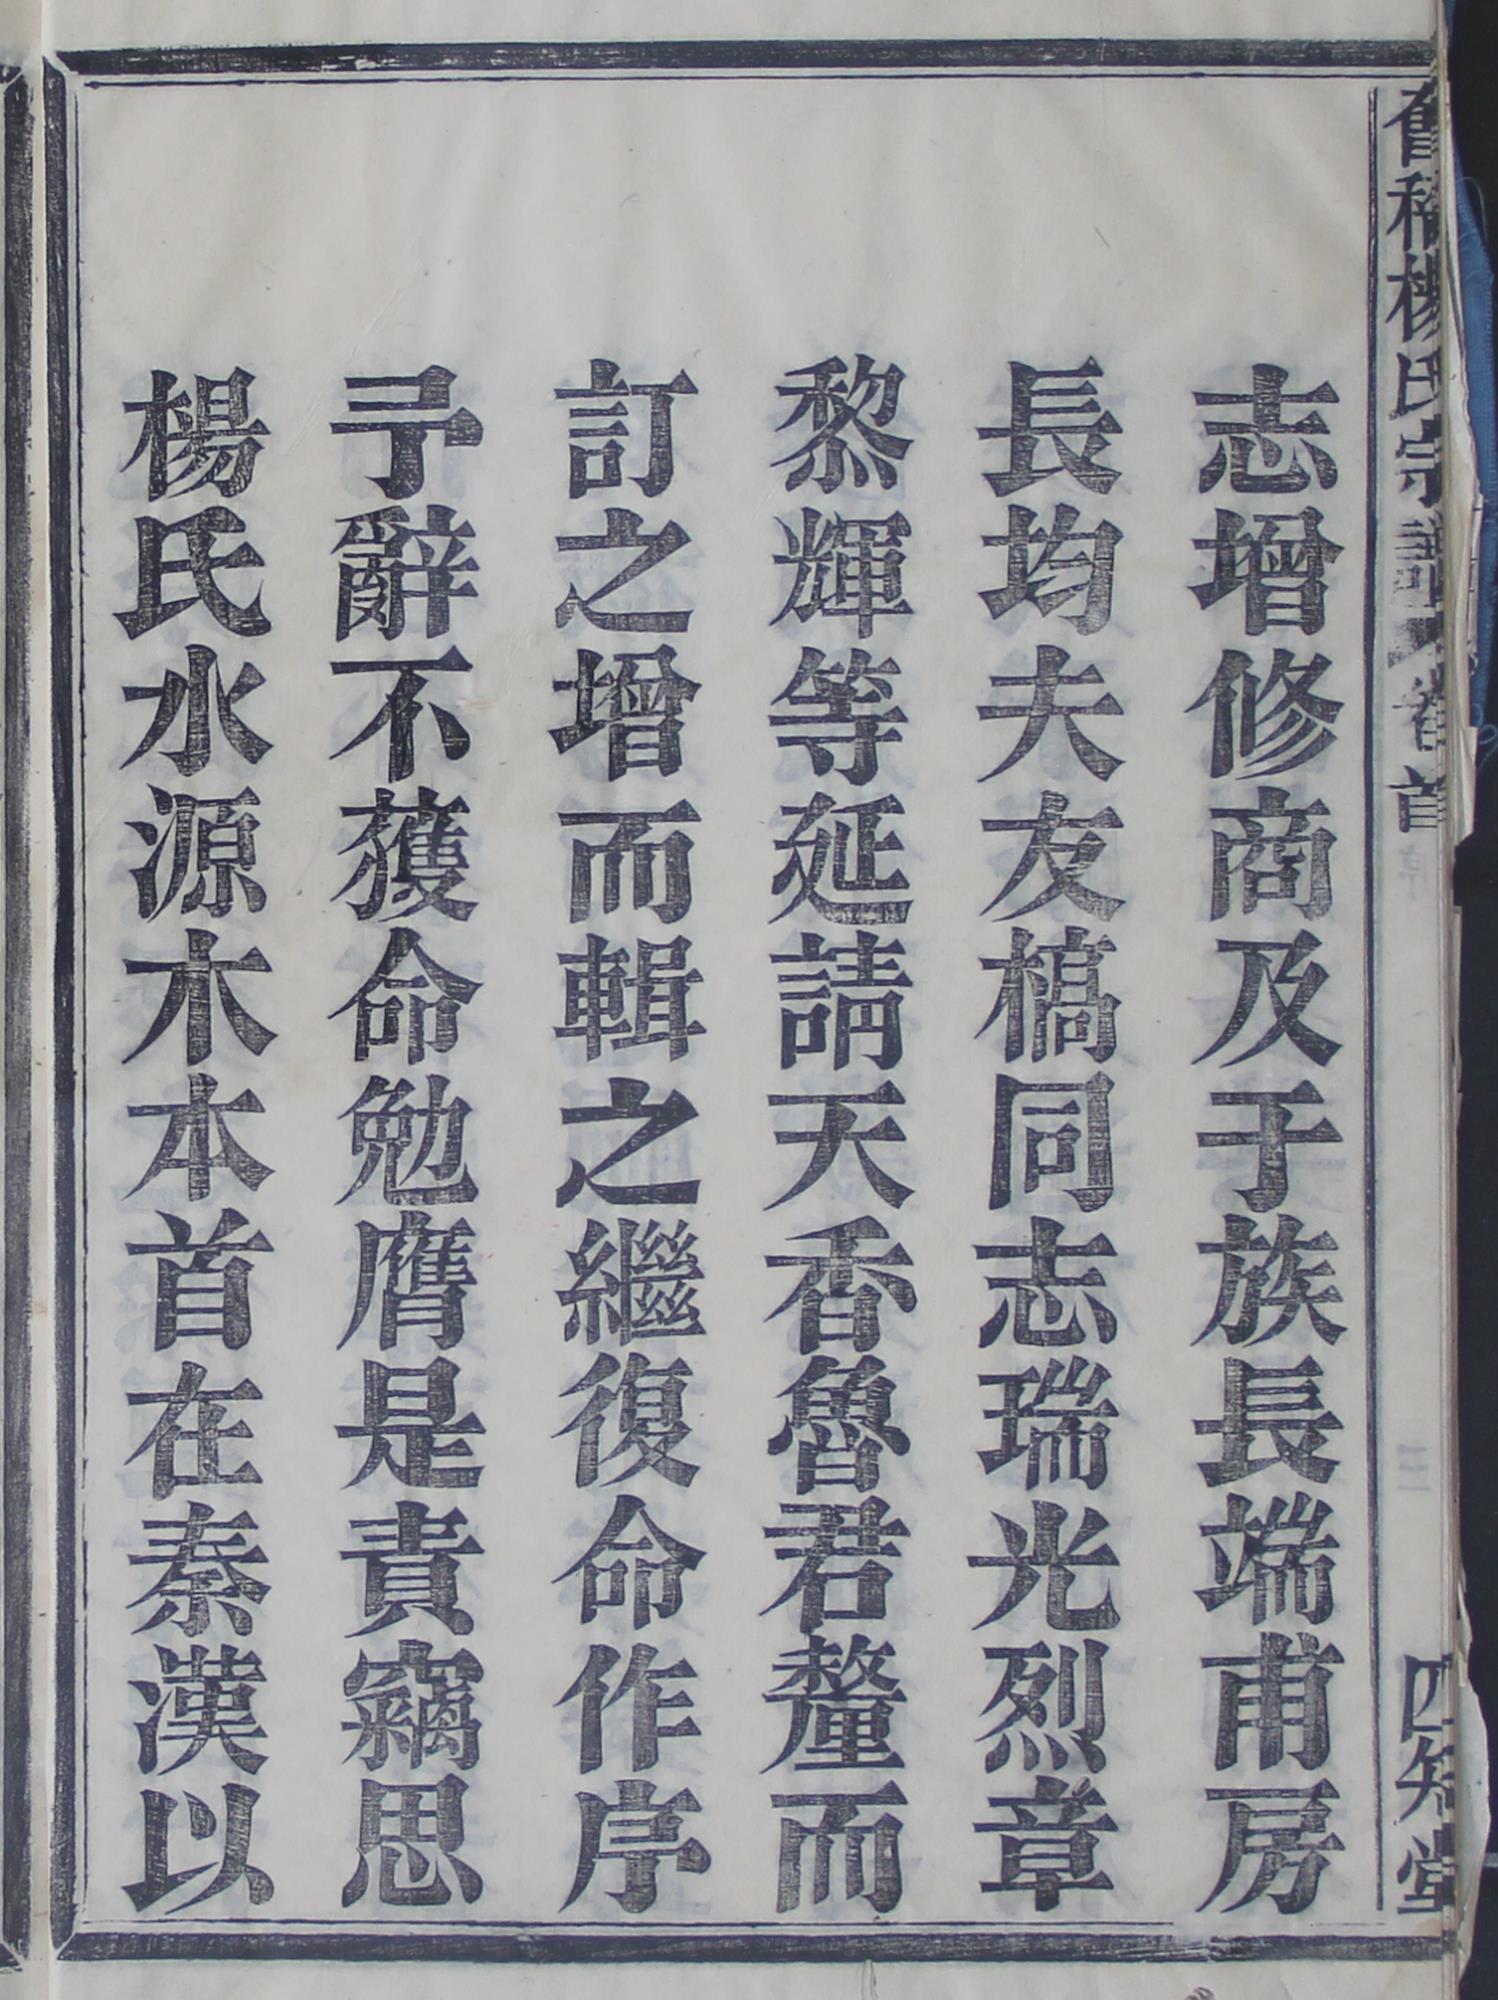 舊稿楊氏宗譜 卷首 序 二 四知堂
志增修商及于族長端甫房
長均夫友槁同志瑞光烈章
黎輝等延請天香魯君釐而
訂之增而輯之繼復命作序
予辭不獲命勉膺是責竊思
楊氏水源木本首在秦漢以